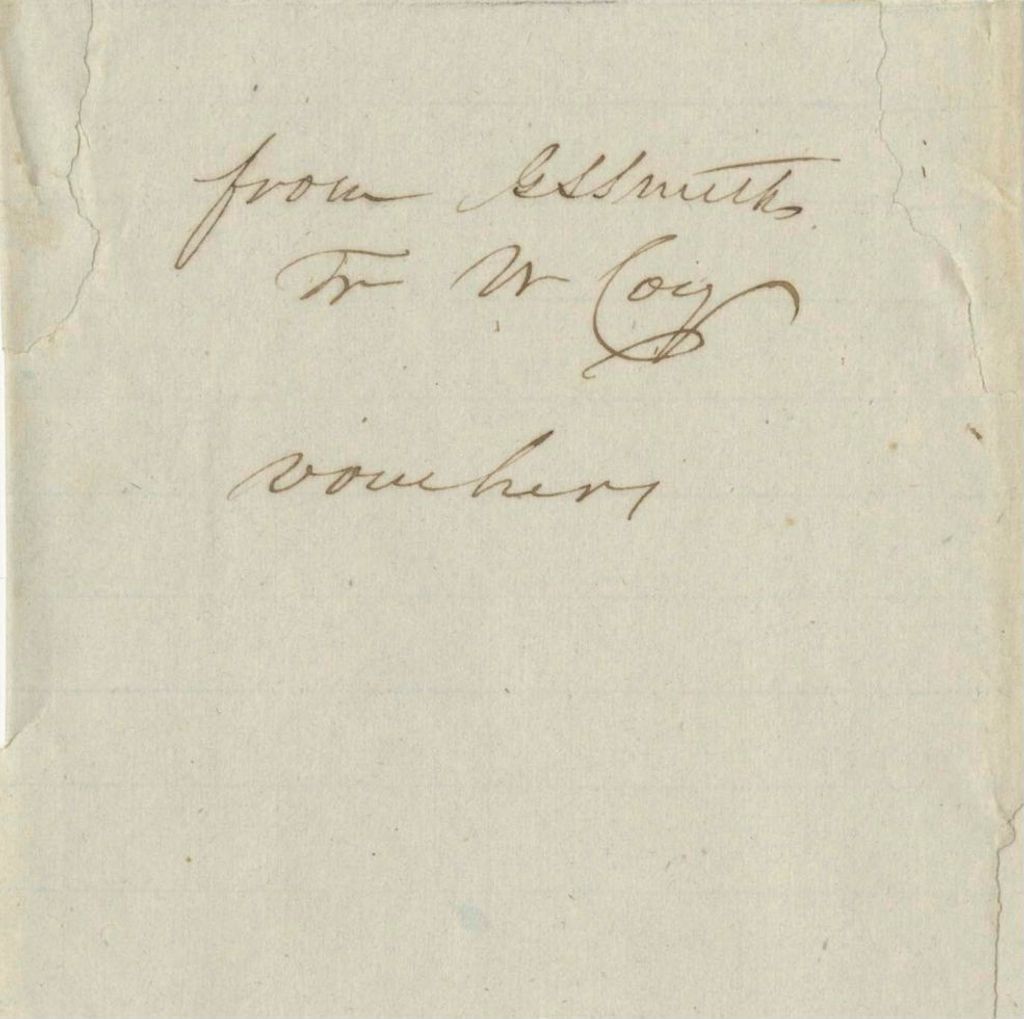 from G S Smith
Tr W Coy
vouchers